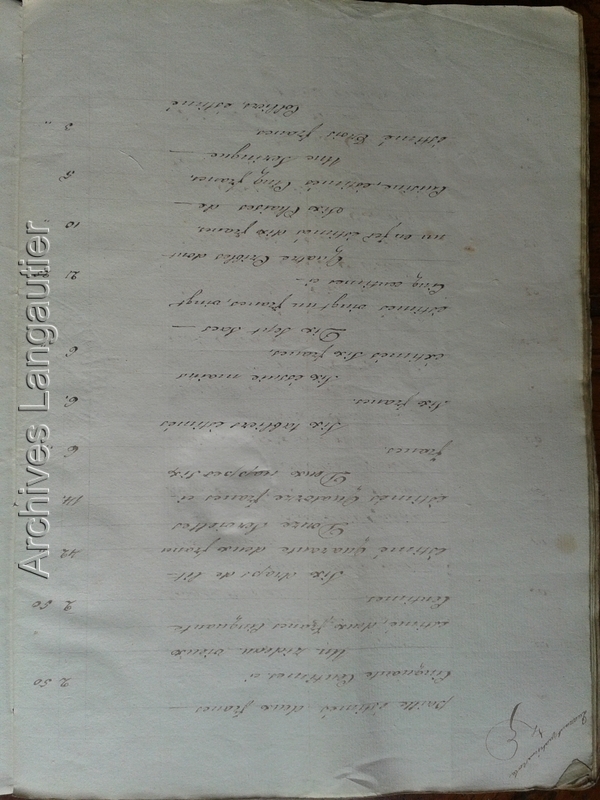 paille estimés deux francs
Cinquante Centimes ci 2 50
Un rideau vieux
estimé, deux francs Cinquante
Centimes 2 50
Six draps de lit
estimé Quarante deux francs 42
Douze Serviettes
estimés Quatorze francs ci 14
Deux nappes Six
francs. 6
Six tabliers estimés
Six francs. 6
Six essuie mains
estimés Six francs. 6
Dix Sept Sacs
estimés vingt un francs, vingt
Cinq centimes ci 21
Quatre Cribles dont
un en fer estimés dix francs. 10
Six Chaises de
Cuisine, estimées Cinq francs, 5
Une Seringue
estimé Trois francs. 3 "
Colliers, estimé
Archives Langautier